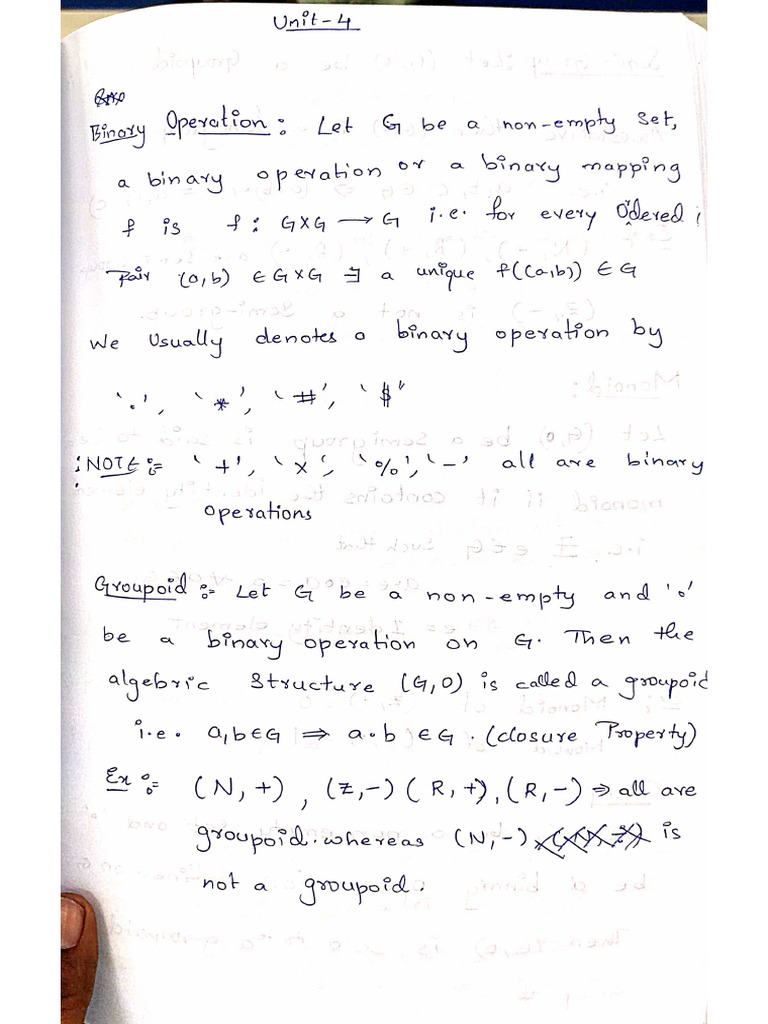 Unit-4
Binary Operation: Let G be a non-empty set,
a binary operation or a binary mapping
f is f: G×G → G i.e. for every Ordered
Pair (a,b) ∈ G×G ∃ a unique f((a,b)) ∈ G
We Usually denotes a binary operation by
'.', '*', '#', '$"
:NOTE:- '+', '×', '%', '-' all are binary
operations
Groupoid:- Let G be a non-empty and 'o'
be a binary operation on G. Then the
algebric Structure (G,O) is called a groupoid
i.e. a,b∈G ⇒ a∘b ∈ G. (closure Property)
Ex:- (N,+), (Z,-) (R,+), (R,-) ⇒ all are
groupoid. whereas (N,-) is
not a groupoid.